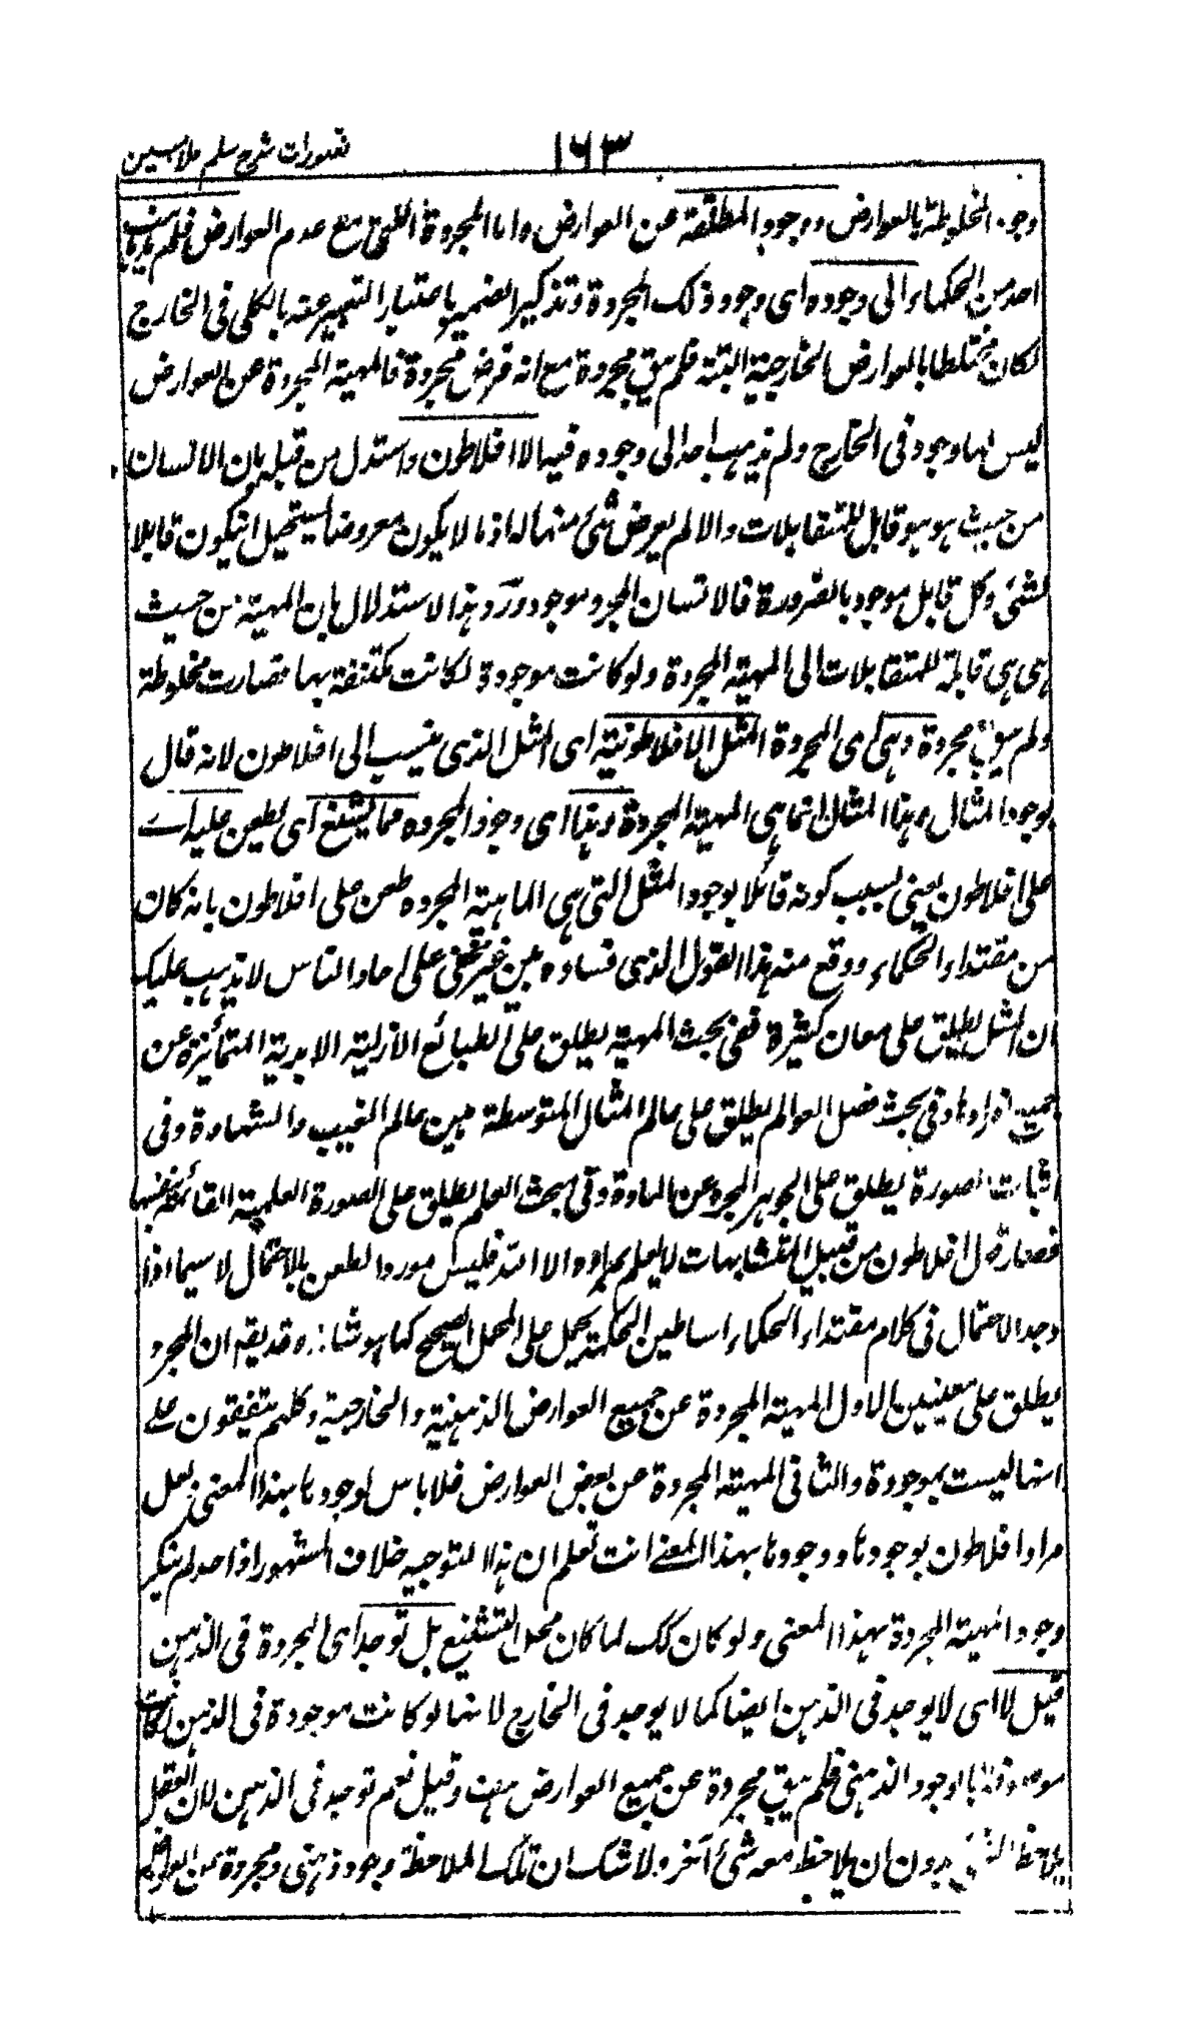 ١٦٣
تصورات شرح سلم ملا مبین
وجود المخلوطة بالعوارض ووجود المطلقة عن العوارض واما المجردة اللتی مع عدم العوارض فلم یذهب
احد من الحکماء الی وجوده ای وجود ذلک المجردة وتذکیر الضمیر باعتبار التعبیر عنه بالکلی فی الخارج
لکان مختلطا بالعوارض الخارجیة البتة فلم یبق مجردة مع انه فرض مجردة فالمهیة المجردة عن العوارض
لیس لها وجود فی الخارج ولم یذهب احد الی وجوده فیه الا افلاطون واستدل من قبله بان الانسان
من حیث هو هو قابل للمتقابلات والا لم یعرض شئ منها له اذ ما لا یکون معروضا یستحیل ان یکون قابلا
لشئ وکل قابل موجود بالضرورة فالانسان المجرد موجود ورد هذا الاستدلال بان المهیة من حیث
هی هی قابلة للمتقابلات الی المهیة المجردة ولو کانت موجودة لکانت مکتنفة بها فصارت مخلوطة
ولم یبق مجردة وهی ای المجردة المثل الافلاطونیة ای المثل الذی ینسب الی افلاطون لانه قال
بوجود المثال وهذا المثال انما هی المهیة المجردة وهذا ای وجود المجرده مما یشنع ای یطعن علیه اے
علی افلاطون یعنی بسبب کونه قائلا بوجود المثل التی هی الماهیة المجرده طعن علی افلاطون بانه کان
من مقتداء الحکماء ووقع منه هذا القول الذی فساده بین غیر مخفی علی احاد الناس لا یذهب علیک
ان المثل یطلق علی معان کثیرة ففی بحث المهیة یطلق علی الطبائع الازلیة الابدیة المتمائزة عن
جمیع افرادها وفی بحث فصل العوالم یطلق علی عالم المثال المتوسطة بین عالم الغیب والشهادة وفی
اثبات الصورة یطلق علی الجوهر المجرد عن المادة وفی مبحث العلم یطلق علی الصورة العلمیة القائمة بنفسها
فصار قول افلاطون من قبیل المتشابهات لا یعلم مراده الا الله فلیس مورد الطعن بالاحتمال لا سیما اذا
وجد الاحتمال فی کلام مقتداء الحکماء اساطین الحکمة یحمل علی المحمل الصحیح کما هو شانه وقد یقم ان المجرد
یطلق علی معنیین الاول المهیة المجردة عن جمیع العوارض الذهنیة والخارجیة وکلهم متفقون علے
انها لیست بموجودة والثانی المهیة المجردة عن بعض العوارض فلا باس لوجودها بهذا المعنی ولعل
مراد افلاطون بوجودها ووجودها بهذا المعنے انت تعلم ان هذا التوجیه خلاف المشهور اذ احد لم ینکر
وجود المهیة المجردة بهذا المعنی ولو کان کک لما کان محل التشنیع بل توجد ای المجردة فی الذهن
قیل لا ای لا یوجد فی الذهن ایضا کما لا یوجد فی الخارج لانها لو کانت موجودة فی الذهن لکانت
موصوفة بالوجود الذهنی فلم یبق مجردة عن جمیع العوارض هف وقیل نعم توجد فی الذهن لان العقل
یلاحظ الشئ بدون ان یلاحظ معه شئ آخر ولا شک ان تلک الملاحظة وجود ذهنی ومجردة عن العوارض